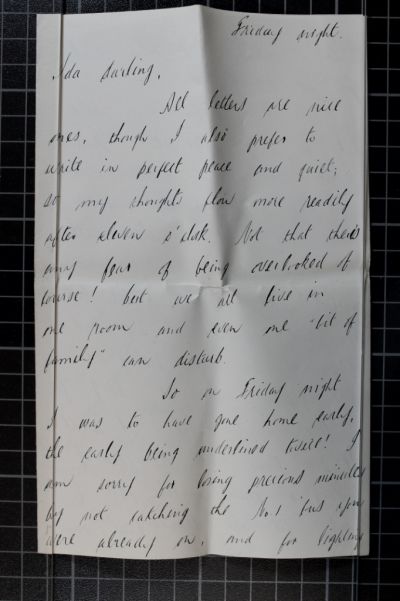 Friday night.
Ida darling,
All letters are nice
ones, though I also prefer to
write in perfect peace and quiet;
so my thoughts flow more readily
after eleven o'clock. Not that there's
any fear of being overlooked of
course! but we all live in
one room and even one "bit of
family" can disturb.
So on Friday night
I was to have gone home early,
the early being underlined twice! I
am sorry for losing precious minutes
by not catching the No 1 'bus you
were already on, and for lighting